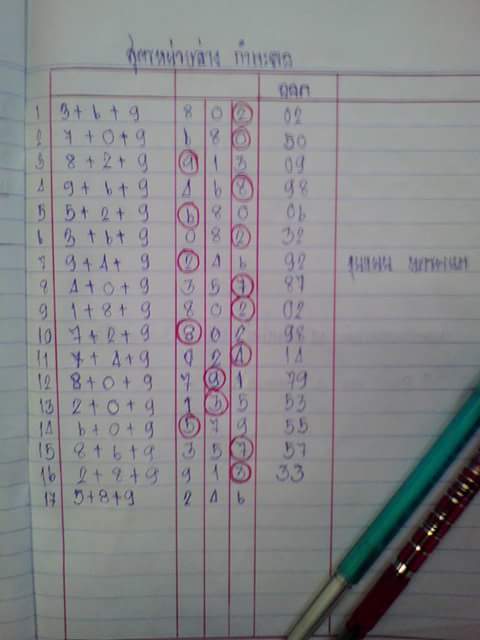 สูตรหน่วยล่าง กำพะตค
ออก
1 3+6+9 8 0 2 02
2 7+0+9 6 8 0 50
3 8+2+9 9 1 3 09
4 9+6+9 4 6 8 98
5 5+2+9 6 8 0 06
6 3+6+9 0 8 2 32
7 9+4+9 2 4 6 92
8 4+0+9 3 5 7 87
9 1+8+9 8 0 2 02
10 7+2+9 8 0 2 98
11 7+4+9 0 2 4 14
12 8+0+9 7 9 1 79
13 2+0+9 1 3 5 53
14 6+0+9 5 7 9 55
15 8+6+9 3 5 7 57
16 2+8+9 9 1 3 33
17 5+8+9 2 4 6